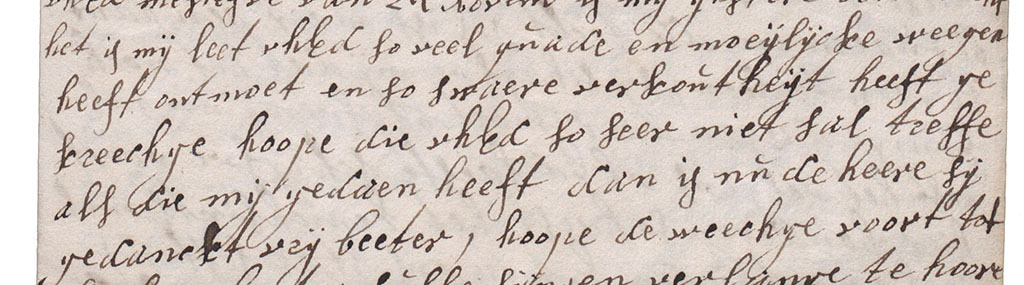 van 21 Novem is mij
het is mij leet vhEd so veel quade en moeijlijcke weegen
heeft ontmoet en so swaere verkoutheijt heeft ge
kreechge hoope die vhEd so seer niet sal treffe
als die mij gedaen heeft dan is nu de heere sij
gedanckt vrij beeter, hoope de weechge voort tot
te hoore